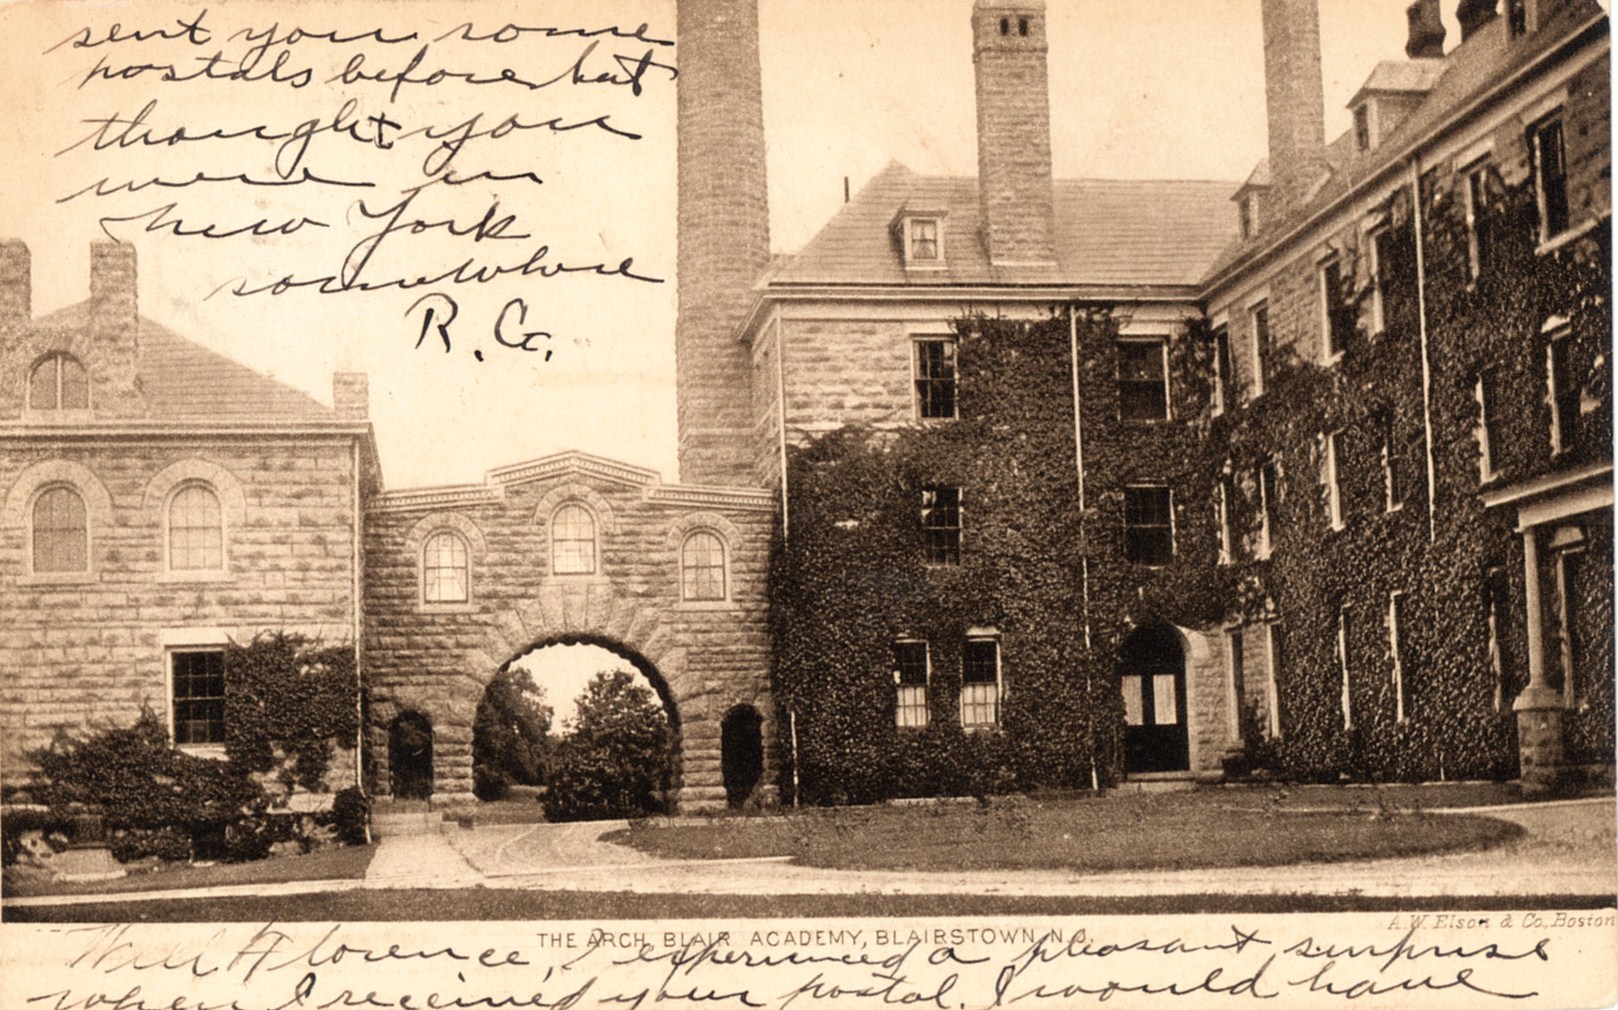 sent you some
postals before but
thought you
were in
New York
somewhere
R. G.
A. W. Elson & Co., Boston
THE ARCH, BLAIR ACADEMY, BLAIRSTOWN, N.J.
Well Florence, I experienced a pleasant surprise
when I received your postal. I would have